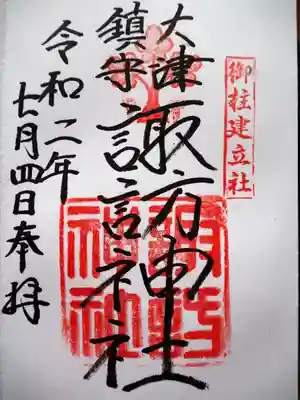 御柱建立社
大津
鎮守
諏訪神社
諏訪
神社
令和二年
七月四日奉拝